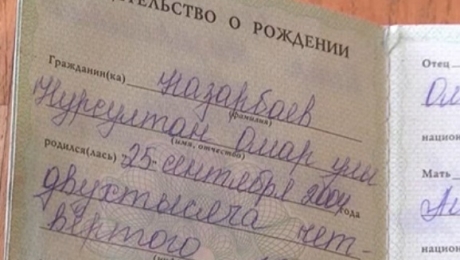 ЕТЕЛЬСТВО О РОЖДЕНИИ
Гражданин(ка) Назарбаев
(фамилия)
Нурсултан Омар улы
(имя, отчество)
родился(лась) 25 сентября 2004 года
двухтысяча чет-
вёртого
Отец
Ом
национ
Мать
национ